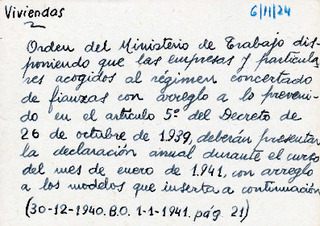 Viviendas
6/11/24
Orden del Ministerio de Trabajo dis-
poniendo que las empresas y particula-
res acogidos al régimen concertado
de fianzas con arreglo a lo preveni-
do en el artículo 5º del Decreto de
26 de octubre de 1.939, deberán presentar
la declaración anual durante el curso
del mes de enero de 1.941, con arreglo
a los modelos que inserta a continuación
(30-12-1940. B.O. 1-1-1941. pág. 21)